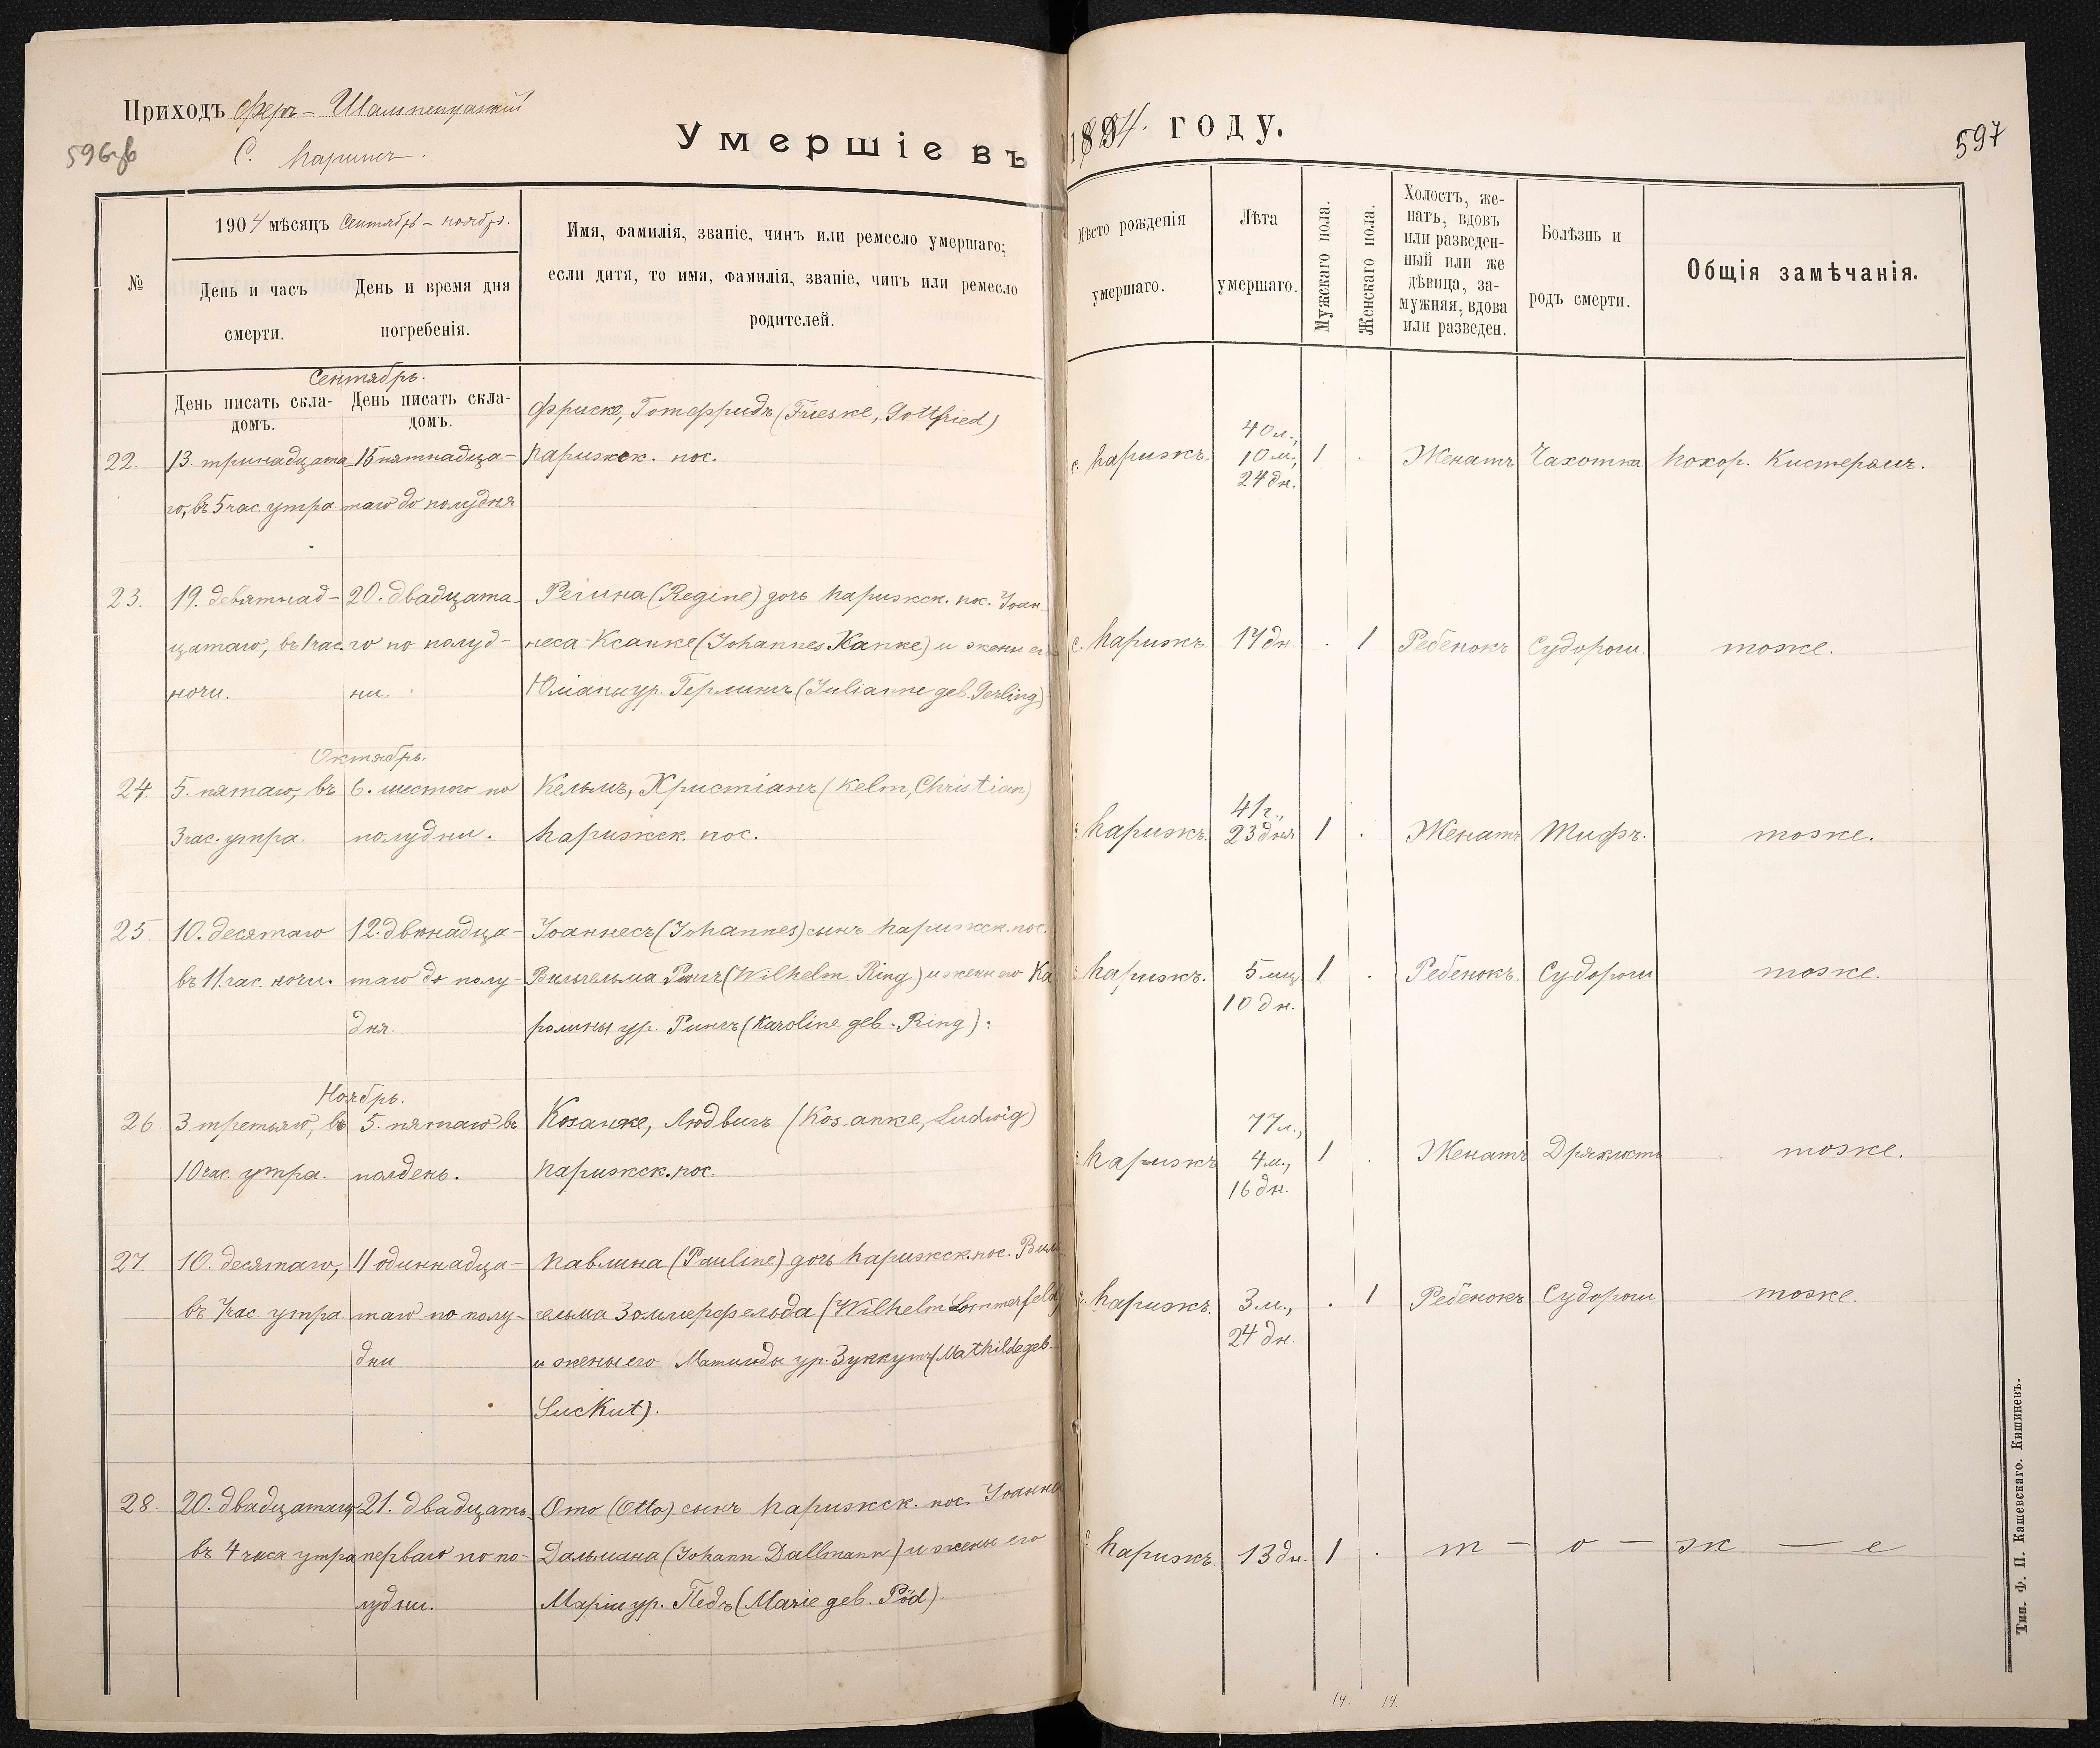 Приходъ Феръ-Шампенуазскій
596об
С. Парижъ.
Умершіе въ
1904 мѣсяцъ Сентябрь – ноябрь.
№
День и часъ
смерти.
День и время дня
погребенія.
Имя, фамилія, званіе, чинъ или ремесло умершаго;
если дитя, то имя, фамилія, званіе, чинъ или ремесло
родителей.
Сентябрь.
День писать скла-
домъ.
День писать скла-
домъ.
Фриске, Готфридъ (Frieske, Gottfried)
22. 13. тринадцата- 15 пятнадца- Парижск. пос.
го, въ 5 час. утра. таго до полудня
23. 19. девятнад- 20. двадцата- Регина (Regine) дочь Парижск. пос. Іоан-
цатаго, въ 1 час. го по полуд- неса Ксанке (Johannes Xanke) и жены его
ночи. ни. Юліаны ур. Герлингъ (Julianne geb. Gerling)
Октябрь.
24. 5. пятаго, въ 6. шестого по Кельмъ, Христіанъ (Kelm, Christian)
3 час. утра. полудни. Парижск. пос.
25. 10. десятаго 12. двѣнадца- Іоаннесъ (Johannes) сынъ Парижск. пос.
въ 11 час. ночи. таго до полу- Вильгельма Рингъ (Wilhelm Ring) и жены его Ка
дня. ролины ур. Рингъ (Karoline geb. Ring).
Ноябрь.
26. 3 третьяго, въ 5. пятаго въ Козанке, Людвигъ (Kosanke, Ludwig)
10 час. утра. полдень. Парижск. пос.
27. 10. десятаго, 11 одиннадца- Павлина (Pauline) дочь Парижск. пос. Виль
въ 7 час. утра таго по полу- гельма Зоммерфельда (Wilhelm Sommerfeld)
дни и жены его Матильды ур. Зуккутъ (Mathilde geb.
Suckut).
28. 20. двадцатаго, 21. двадцать Ото (Otto) сынъ Парижск. пос. Іоанна
въ 4 часа утра перваго по по- Дальмана (Johann Dallmann) и жены его
лудни. Маріи ур. Педъ (Marie geb. Pöd).
1894. году.
597
Мѣсто рожденія
умершаго.
Лѣта
умершаго.
Мужскаго пола.
Женскаго пола.
Холостъ, же-
натъ, вдовъ
или разведен-
ный или же
дѣвица, за-
мужняя, вдова
или разведен.
Болѣзнь и
родъ смерти.
Общія замѣчанія.
40 л.,
с. Парижъ. 10 м., 1 . Женатъ Чахотка Похор. Кистеромъ.
24 дн.
с. Парижъ 14 дн. . 1 Ребенокъ Судороги. тоже.
41 г.,
с. Парижъ. 23 дня 1 . Женатъ Тифъ. тоже.
с. Парижъ. 5 мц. 1 . Ребенокъ. Судороги тоже.
10 дн.
77 л.,
с. Парижъ 4 м., 1 . Женатъ Дряхлость тоже.
16 дн.
с. Парижъ. 3 м., . 1 Ребенокъ Судороги тоже.
24 дн.
с. Парижъ 13 дн. 1 . т – о – ж – е
14. 14.
Тип. Ф. П. Кашевскаго. Кишиневъ.